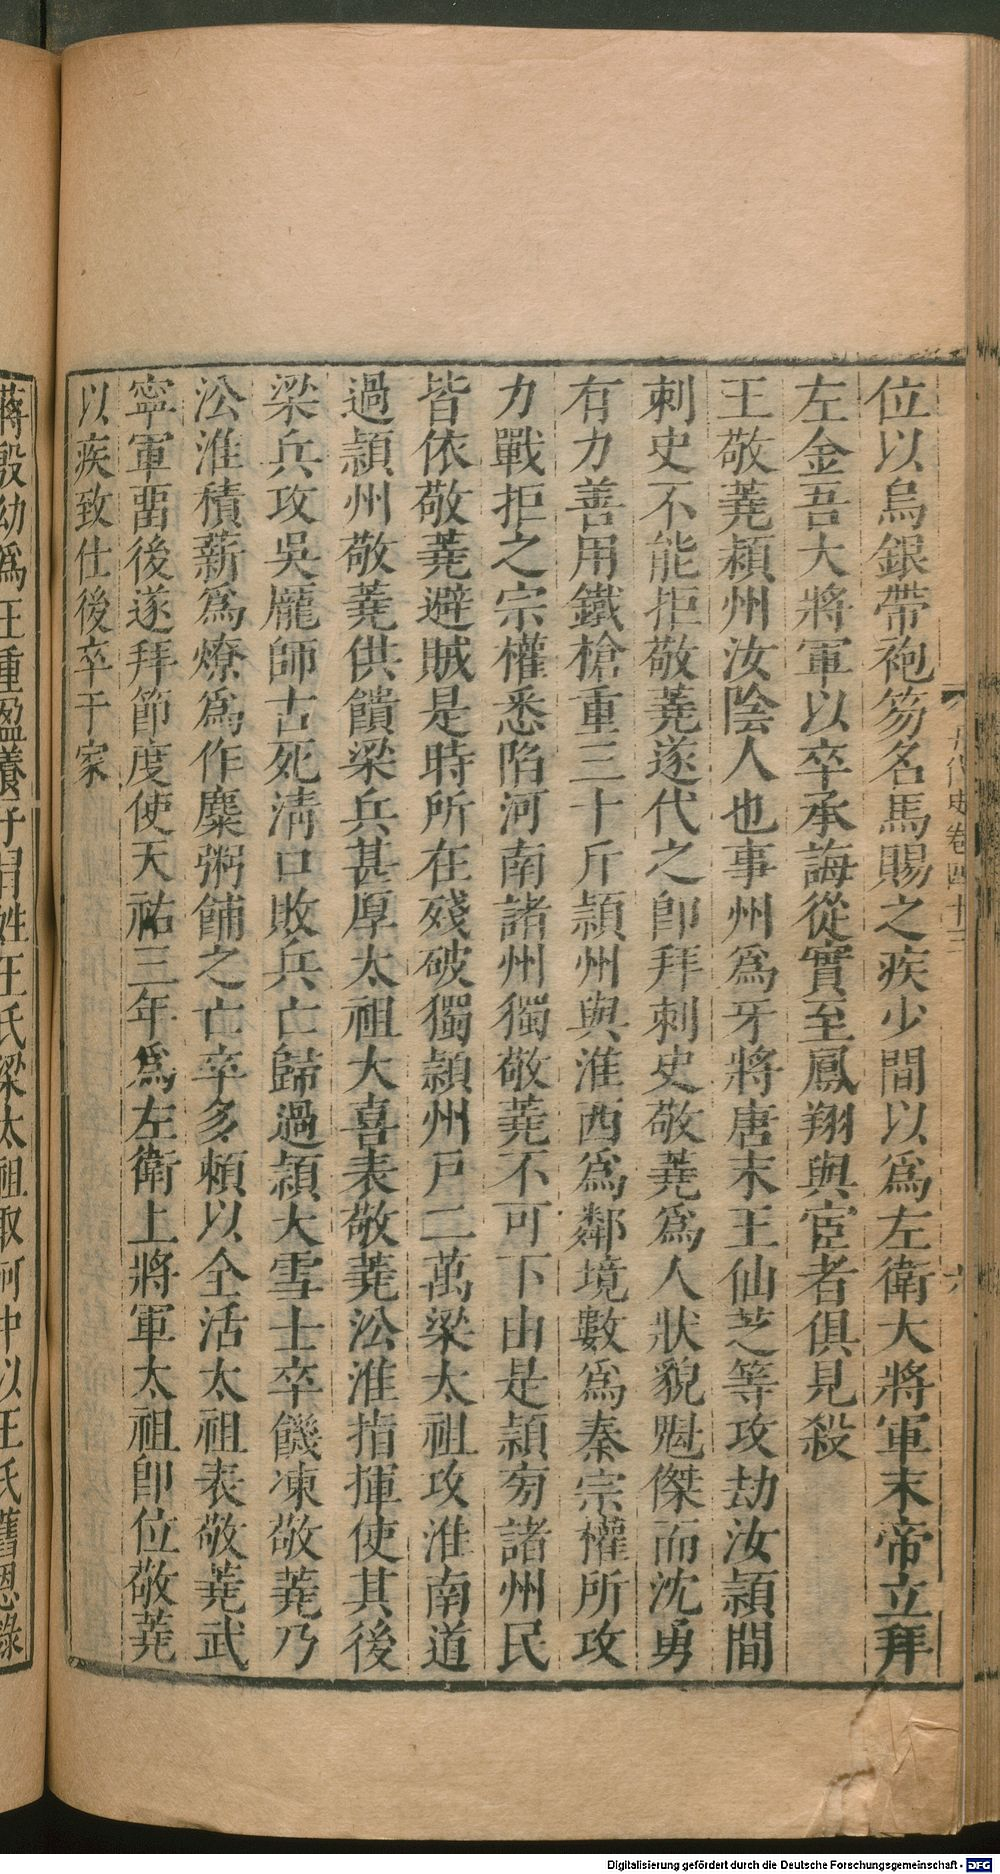 位以烏銀帶袍笏名馬賜之疾少間以爲左衛大將軍末帝立拜
左金吾大將軍以卒承誨從實至鳳翔與宦者俱見殺
王敬蕘潁州汝陰人也事州爲牙將唐末王仙芝等攻劫汝潁間
刺史不能拒敬蕘遂代之卽拜刺史敬蕘爲人狀貌魁傑而沈勇
有力善用鐵槍重三十斤潁州與淮西爲鄰境數爲秦宗權所攻
力戰拒之宗權悉陷河南諸州獨敬蕘不可下由是潁旁諸州民
皆依敬蕘避賊是時所在殘破獨潁州戸二萬梁太祖攻淮南道
過潁州敬蕘供饋梁兵甚厚太祖大喜表敬蕘沿淮指揮使其後
梁兵攻吳龐師古死淸口敗兵亡歸過潁大雪士卒饑凍敬蕘乃
沿淮積薪爲燎爲作糜粥餔之亡卒多賴以全活太祖表敬蕘武
寧軍畱後遂拜節度使天祐三年爲左衛上將軍太祖卽位敬蕘
以疾致仕後卒于家
蔣殷幼爲王重盈養子冒姓王氏梁太祖取河中以王氏舊恩錄
五代史卷四十三
六
Digitalisierung gefördert durch die Deutsche Forschungsgemeinschaft - DFG